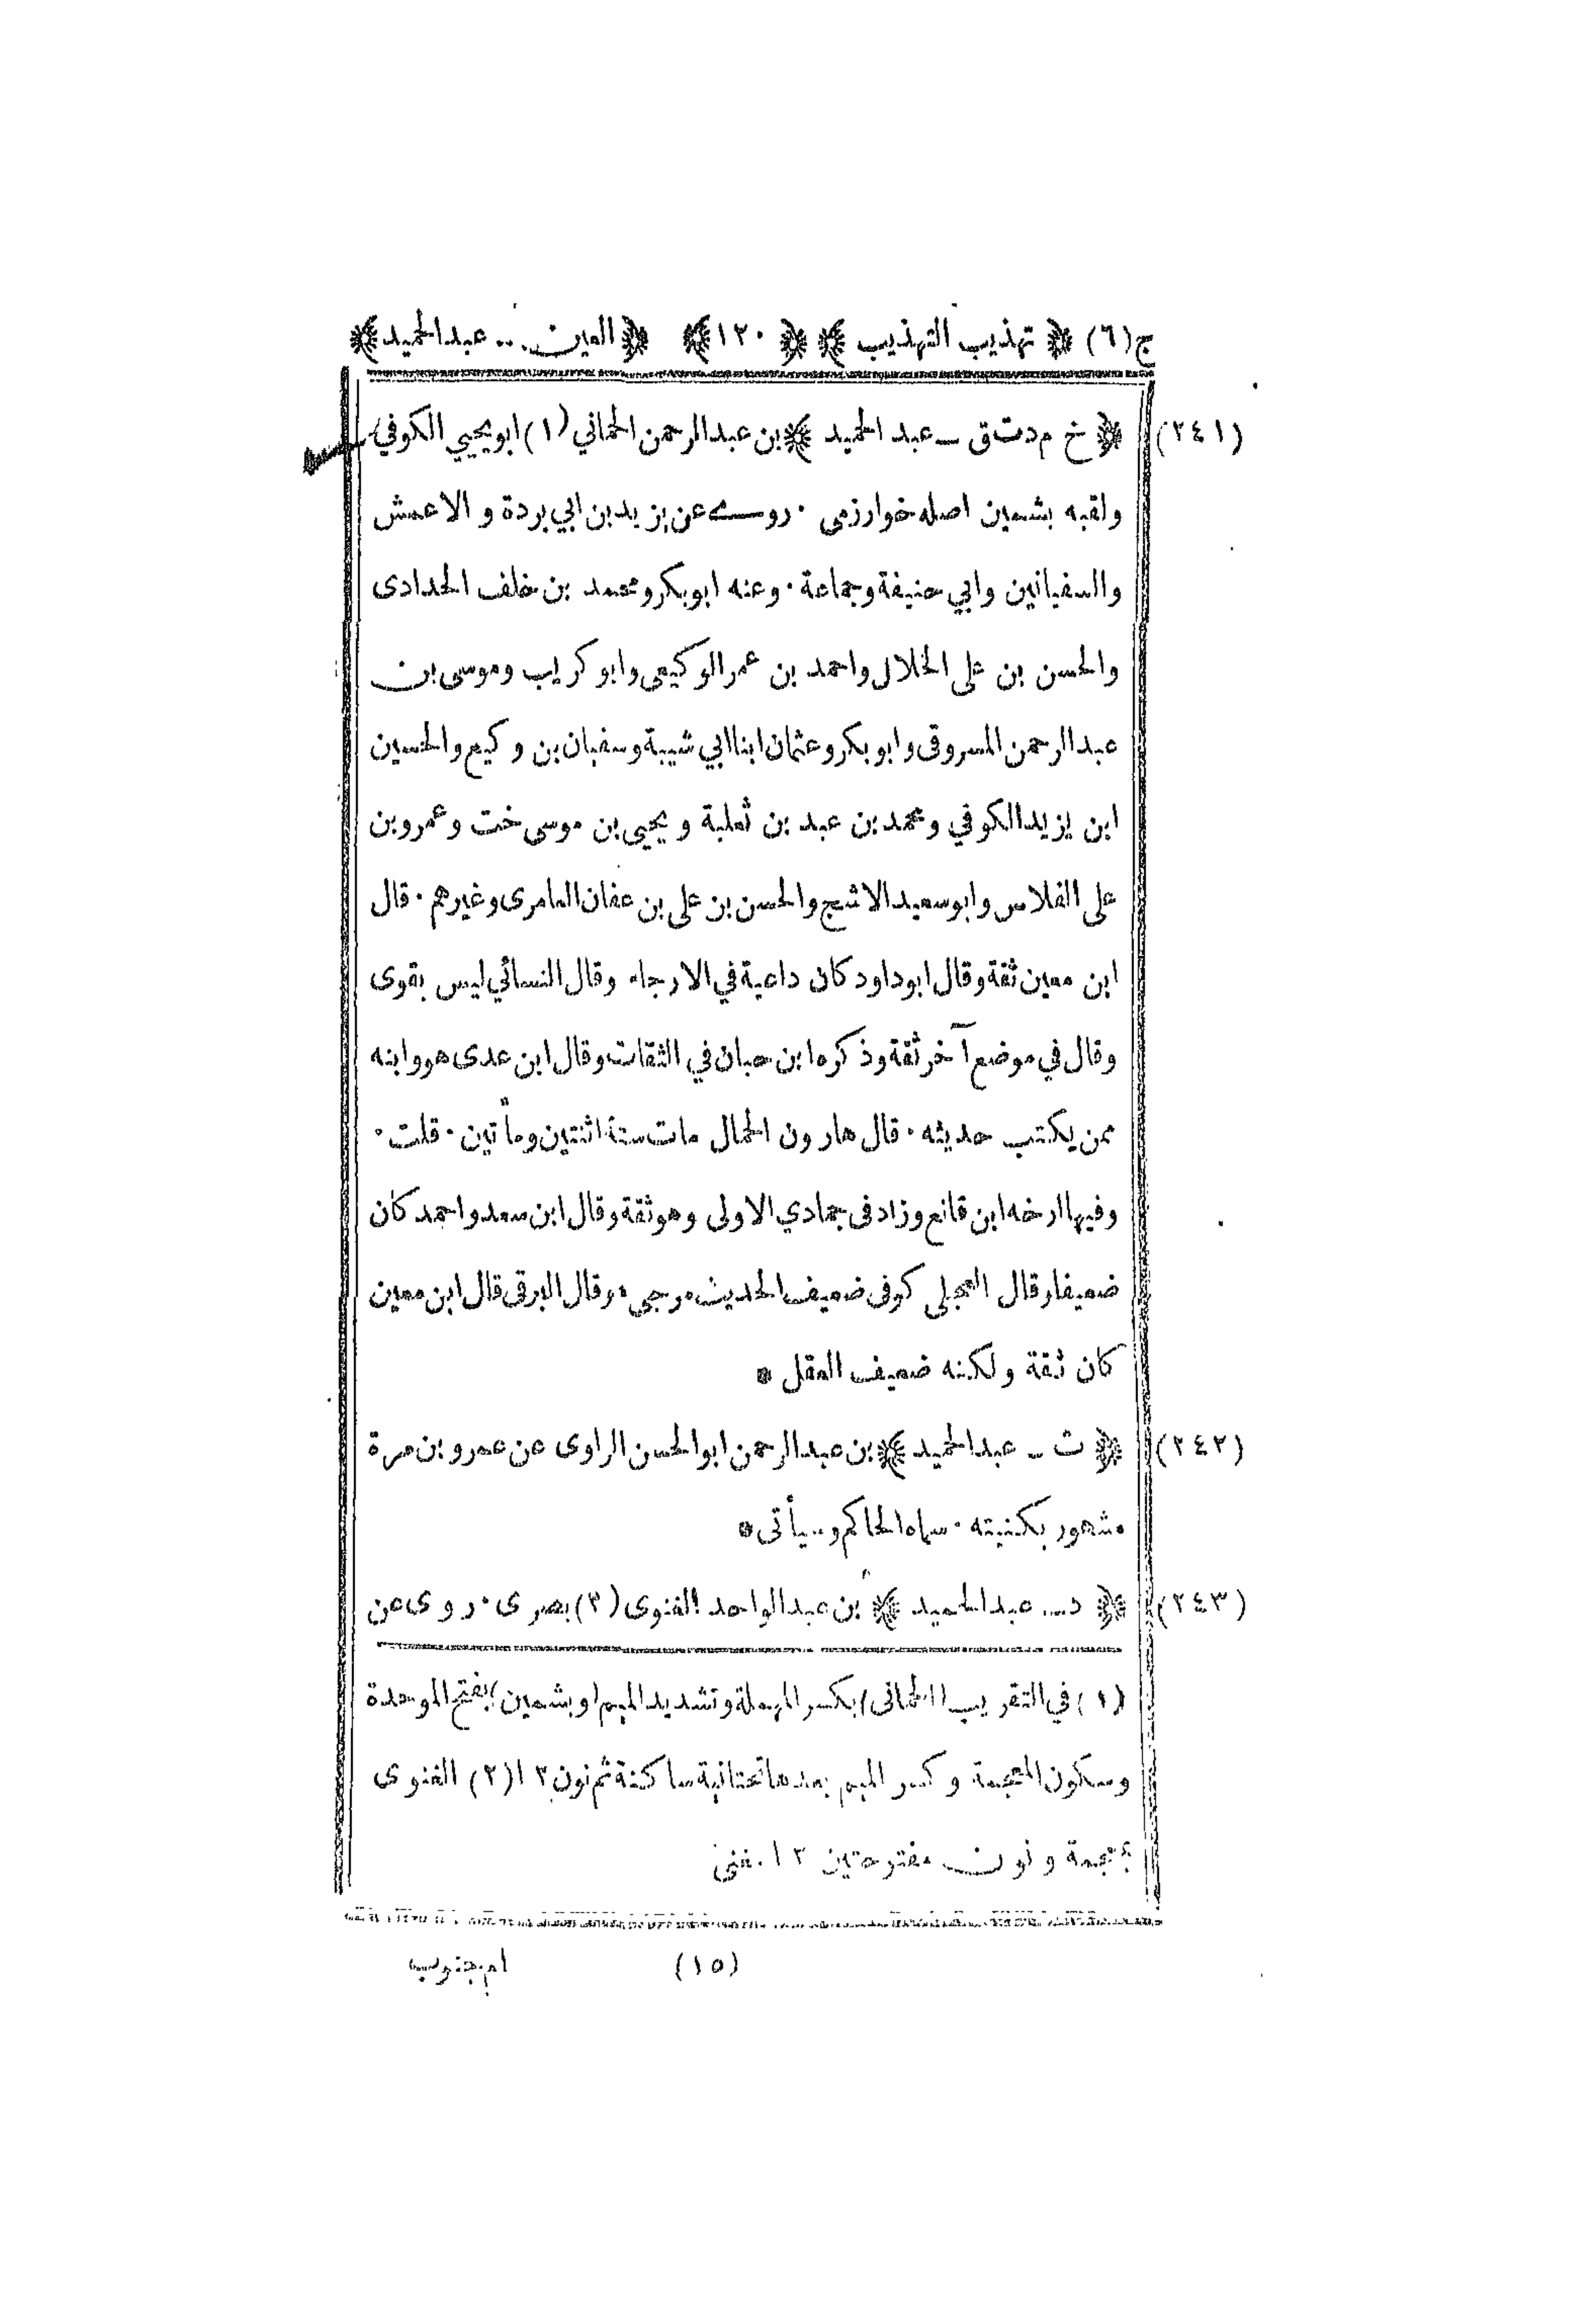 ج(٦) ﴿ تهذيب التهذيب ﴾ ﴿ ١٢٠ ﴾ ﴿ العين ... عبد الحميد ﴾
(٢٤١) ﴿ خ م د ت ق ـ عبد الحميد ﴾ بن عبد الرحمن الحماني (١) ابو يحيي الكوفي
ولقبه بشمين اصله خوارزمى ٠ روى عن يزيد بن ابي بردة و الاعمش
والسفيانين وابي حنيفة وجماعة ٠ وعنه ابو بكر ومحمد بن خلف الحدادى
والحسن بن على الخلال واحمد بن عمر الوكيعى وابو كريب وموسى بن
عبد الرحمن المسروقى وابو بكر وعثمان ابنا ابي شيبة وسفيان بن وكيع والحسين
ابن يزيد الكوفي ومحمد بن عبد بن ثعلبة ويحيى بن موسى خت وعمرو بن
على الفلاس وابو سعيد الاشج والحسن بن على بن عفان العامرى وغيرهم ٠ قال
ابن معين ثقة وقال ابو داود كان داعية في الارجاء وقال النسائي ليس بقوى
وقال في موضع آخر ثقة وذكره ابن حبان في الثقات وقال ابن عدى هو وابنه
ممن يكتب حديثه ٠ قال هارون الحمال مات سنة اثنتين ومأتين ٠ قلت ٠
وفيها ارخه ابن قانع وزاد فى جمادي الاولى وهو ثقة وقال ابن سعد واحمد كان
ضعيفا وقال العجلى كوفى ضعيف الحديث مرجى ء وقال البرقى قال ابن معين
كان ثقة ولكنه ضعيف العقل *
(٢٤٢) ﴿ ت ـ عبد الحميد ﴾ بن عبد الرحمن ابو الحسن الراوى عن عمرو بن مرة
مشهور بكنيته ٠ سماه الحاكم وسيأتى *
(٢٤٣) ﴿ د ... عبد الحميد ﴾ بن عبد الواحد الغنوى (٢) بصرى ٠ روى عن
(١) في التقريب (الحمانى) بكسر المهملة وتشديد الميم (وبشمين) بفتح الموحدة
وسكون المعجمة وكسر الميم بعدها تحتانية ساكنة ثم نون ١٢ (٢) الغنوى
بمعجمة ونون مفتوحتين ١٢ مغنى
(١٥) ام جنوب